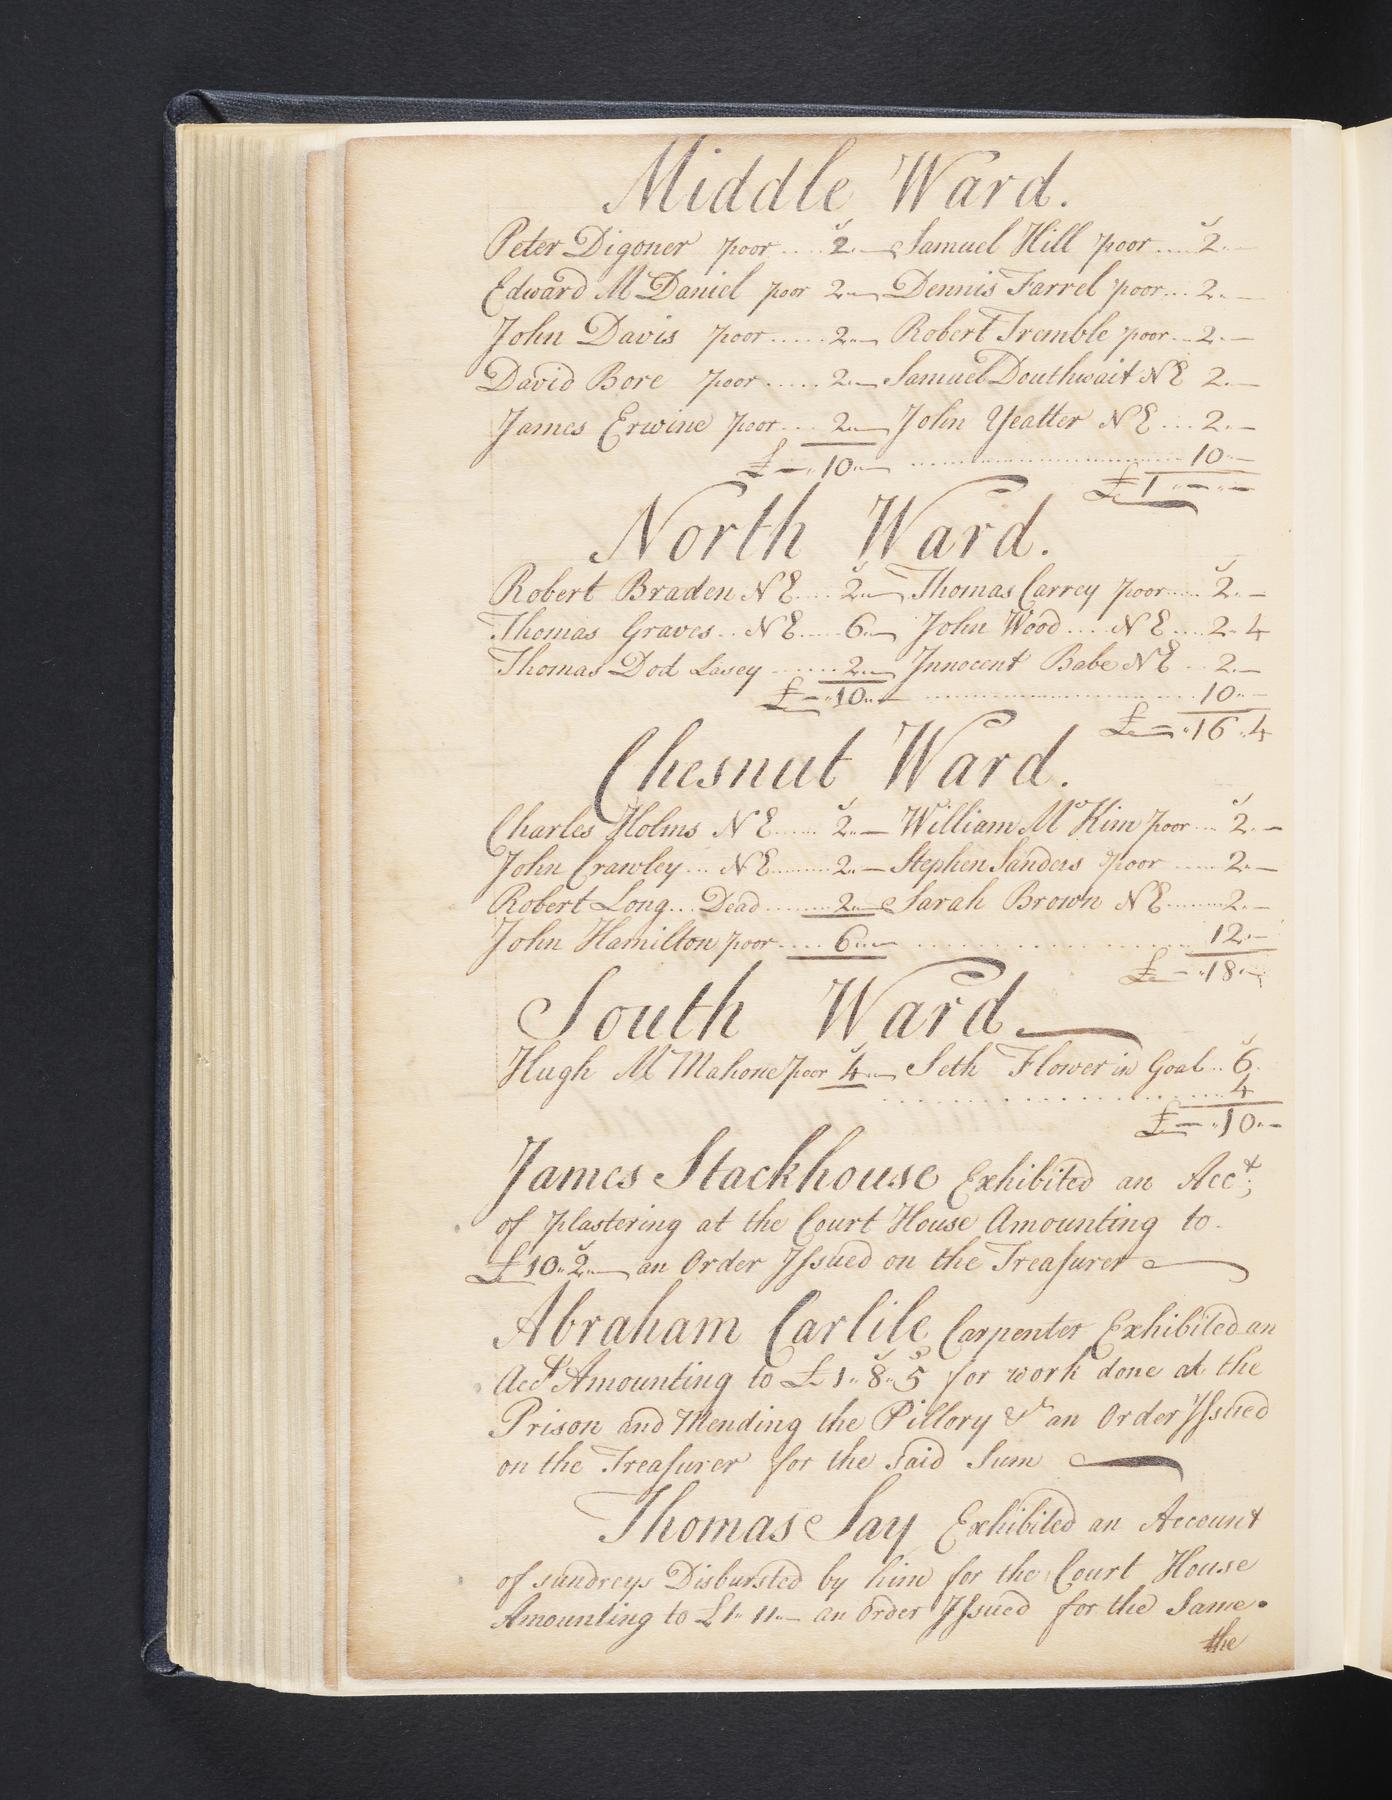 Middle Ward.
Peter Digoner poor .... 2 .. — Samuel Hill poor .... 2 .. —
Edward Mc Daniel poor 2 .. — Dennis Farrel poor ... 2 .. —
John Davis poor ...... 2 .. — Robert Tremble poor .. 2 .. —
David Bore poor ...... 2 .. — Samuel Douthwait NE 2 .. —
James Erwine poor ... 2 .. — John Yeatter NE ... 2 .. —
£ — .. 10 .. — .................... 10 .. —
£ 1 .. — .. —
North Ward.
Robert Braden NE .... 2 .. — Thomas Carrey poor .... 2 .. —
Thomas Graves .. NE .... 6 .. — John Wood .... NE .... 2 .. 4
Thomas Dod Lasey ....... 2 .. — Innocent Babe NE ... 2 .. —
£ — .. 10 .. — .................... 10 .. —
£ — .. 16 .. 4
Chesnut Ward.
Charles Holms NE ...... 2 .. — William Mc Kim poor ... 2 .. —
John Crawley ... NE ....... 2 .. — Stephen Sanders poor ..... 2 .. —
Robert Long ... Dead ....... 2 .. — Sarah Brown NE ....... 2 .. —
John Hamilton poor .... 6 .. — .................... 12 .. —
£ — .. 18 .. —
South Ward
Hugh Mc Mahone poor 4 .. — Seth Flower in Goal .. 6
.................... 4
£ — .. 10 .. —
James Stackhouse Exhibited an Acct;
of plastering at the Court House Amounting to
£ 10 .. 2 .. — an Order Issued on the Treasurer
Abraham Carlile Carpenter Exhibited an
Acct Amounting to £ 1 .. 8 .. 5 for work done at the
Prison and Mending the Pillory &c an Order Issued
on the Treasurer for the Said Sum
Thomas Say Exhibited an Account
of sundreys Disbursted by him for the Court House
Amounting to £ 1 .. 11 .. — an Order Issued for the Same.
the